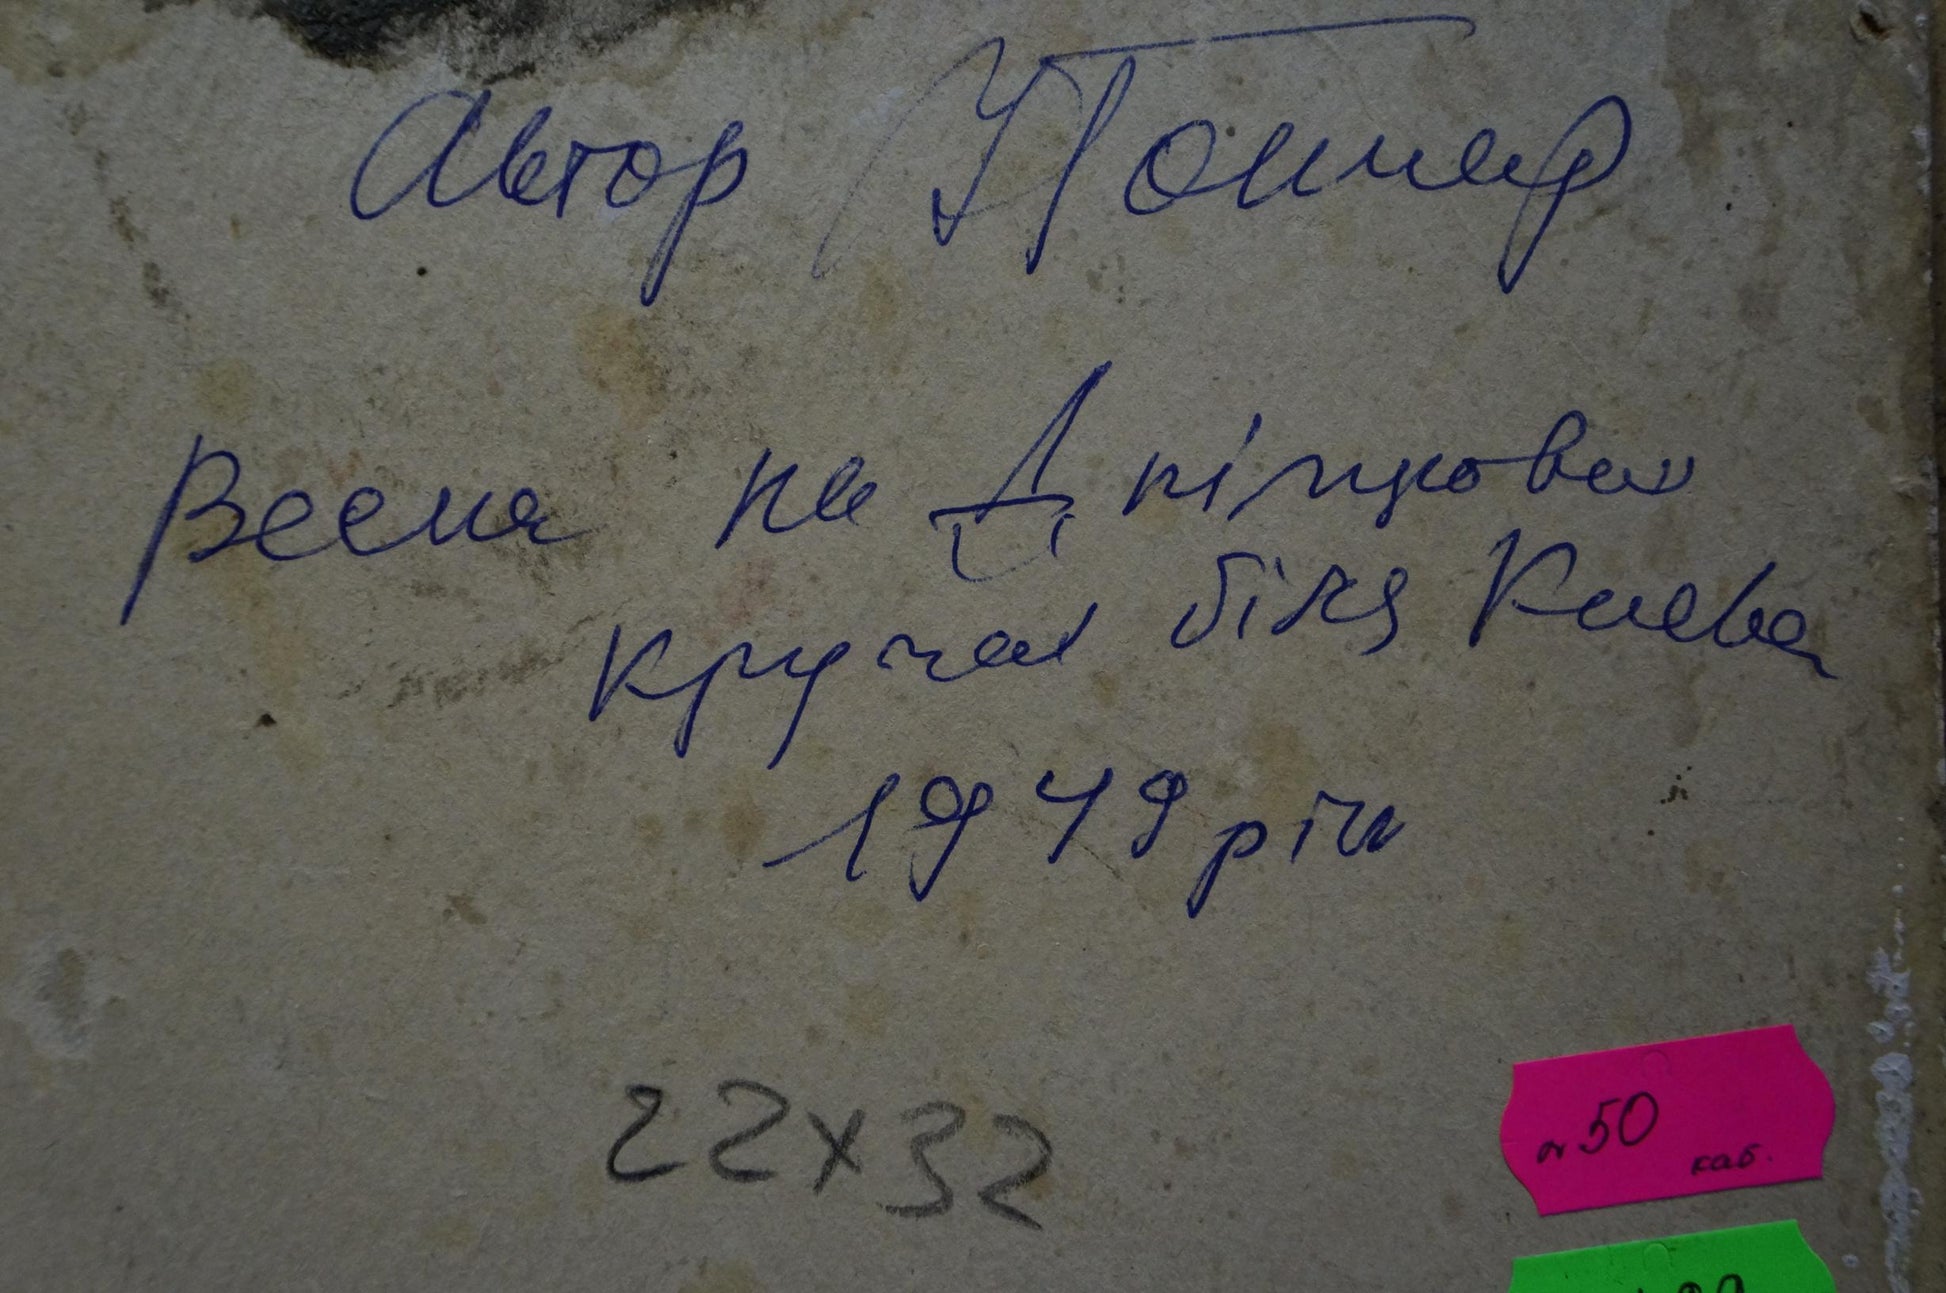 Автор
Весна на Дніпрових
кручах біля Києва
1949 рік
22х32
50
каб.